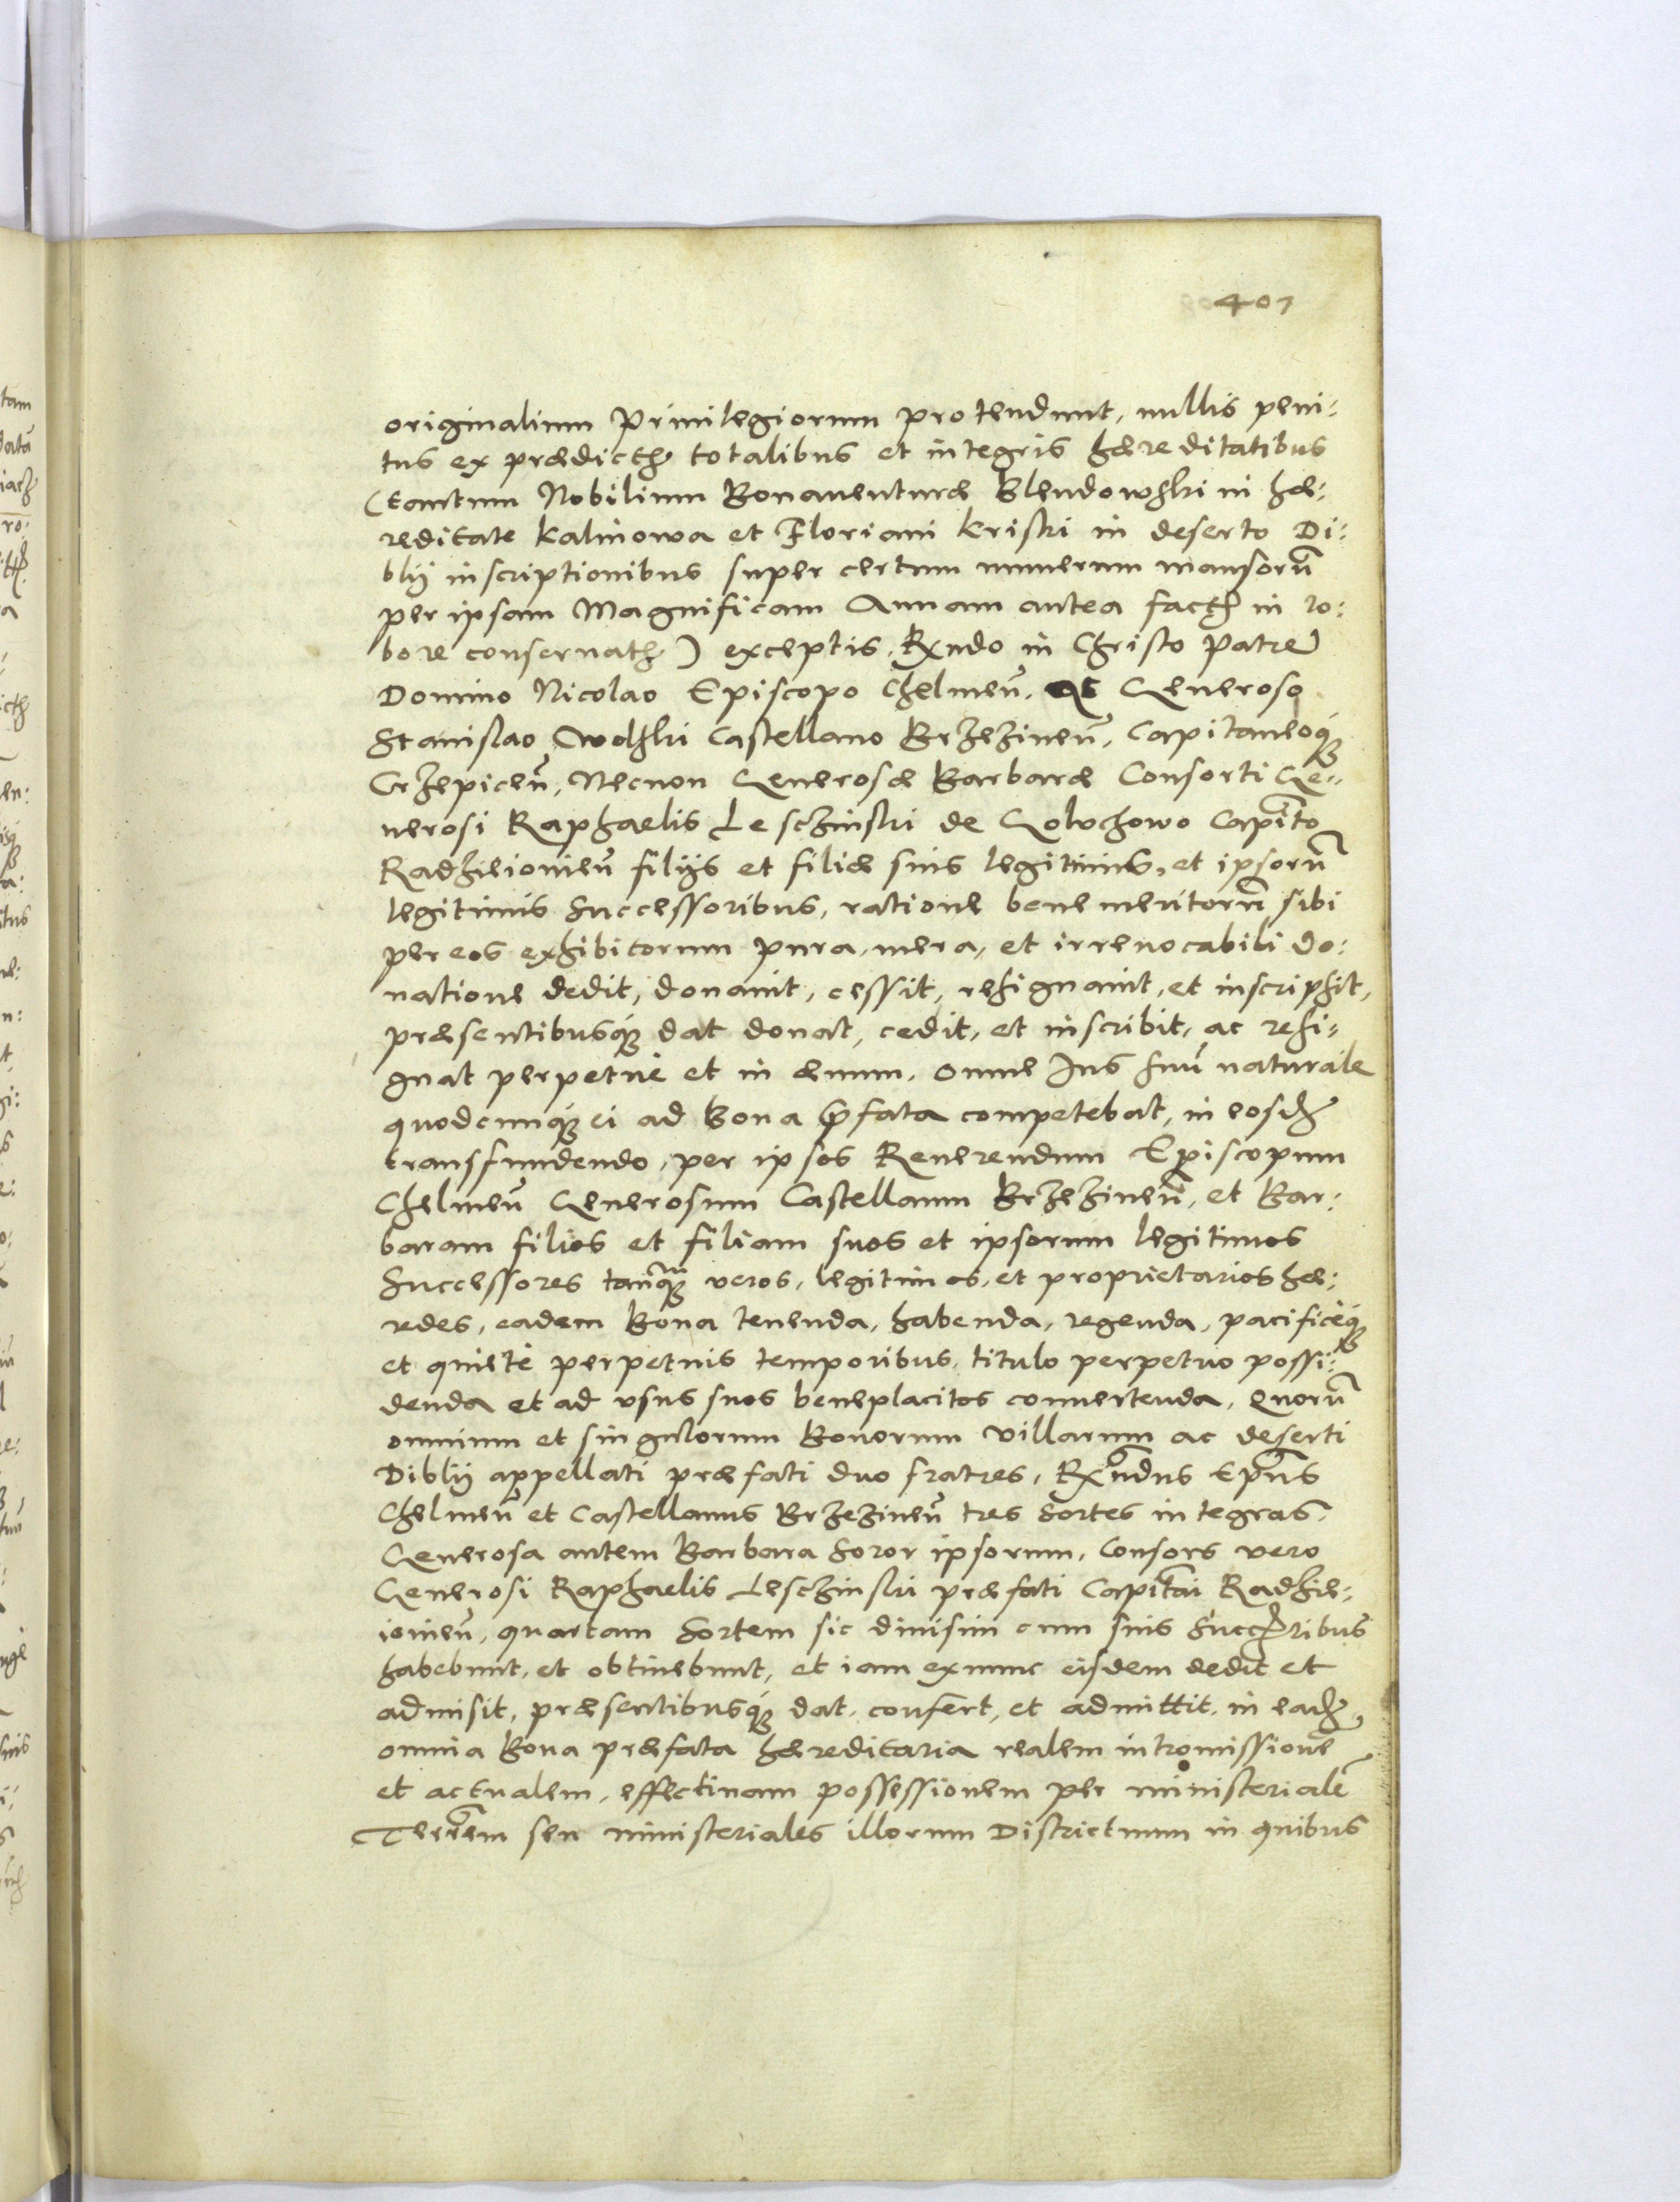 407
originalium Priuilegiorum protendunt, nullis peni:
tus ex prædicth totalibus et integris hæreditatibus
(tantum Nobilium Bonauenturæ Blendowski in hæ:
reditate Kalinowa et Floriani Kriski in deserto Di:
blij inscriptionibus super certum numerum mansorũ
per ipsam Magnificam Annam antea facth in ro:
bore conseruath) exceptis, Rxndo in Christo Patre
Domino Nicolao Episcopo Chelmeñ. Et Generoso
Stanislao Wolski Castellano Brzezineñ, Capitaneoq́ꝫ
Crzepiceñ, Necnon Generosæ Barbaræ Consorti Ge:
nerosi Raphaelis Leschinski de Goluchowo Capito
Radzieiouieñ filijs et filiæ suis legitimis, et ipsorũ
legitimis Successoribus, ratione bene meritorũ sibi
per eos exhibitorum pura, mera, et irreuocabili do:
natione dedit, donauit, cessit, resignauit, et inscripsit,
præsentibusq́ꝫ dat donat, cedit, et inscribit, ac resi:
gnat perpetuè et in æuum. Omne Ius suũ naturale
quodcunq́ꝫ ei ad Bona p̃fata competebat, in eosdꝫ
transfundendo, per ipsos Reuerendum Episcopum
Chelmeñ Generosum Castellanum Brzezineñ, et Bar:
baram filios et filiam suos et ipsorum legitimos
Successores tanq̃ꝫ veros, legitimos, et proprietarios hæ:
redes, eadem Bona tenenda, habenda, regenda, pacificèq́ꝫ
et quietè perpetuis temporibus, titulo perpetuo possi:
denda et ad vsus suos beneplacitos conuertenda, Quorũ
omnium et singulorum Bonorum villarum ac deserti
Diblij appellati præfati duo fratres, Rxñdus Ep̃us
Chelmeñ et Castellanus Brzezineñ tres sortes integras,
Generosa autem Barbara Soror ipsorum, Consors vero
Generosi Raphaelis Leschinski præfati Capitãi Radzie:
iouieñ, quartam Sortem sic diuisim cum suis Succ̃ribus
habebunt, et obtinebunt, et iam exnunc eisdem dedit et
admisit, præsentibusq́ꝫ dat, confert, et admittit, in eadꝫ,
omnia Bona præfata hæreditaria realem intromissionẽ
et actualem, effectiuam possessionem per ministerialẽ
Terr̃em seu ministeriales illorum Districtuum in quibus